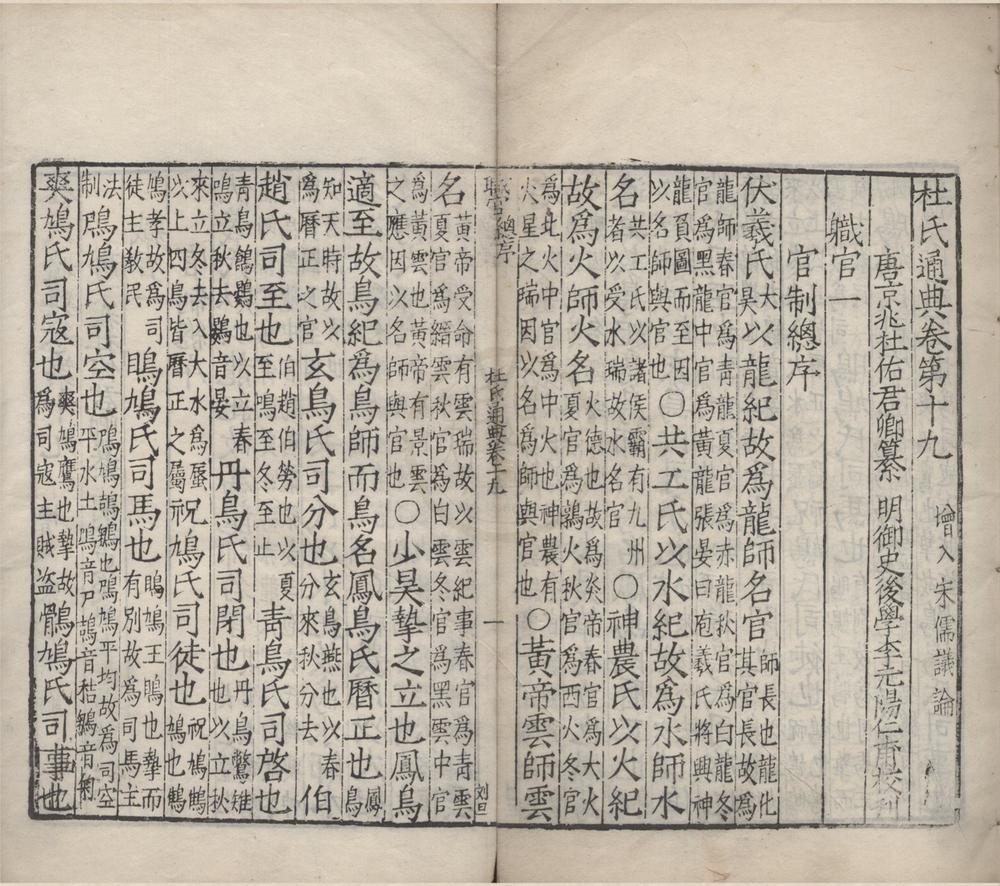 杜氏通典卷第十九 增入宋儒議論
唐京兆杜佑君卿纂 明御史後學李元陽仁甫校刋
職官一
官制總序
伏羲氏大昊以龍紀故爲龍師名官師長也龍化其官長故爲
龍師春官爲青龍夏官爲赤龍秋官爲白龍冬官爲黑龍中官爲黃龍張晏曰庖羲氏將興神
龍負圖而至因以名師與官也〇共工氏以水紀故爲水師水
名共工氏以諸侯霸有九州者以受水瑞故以水名官〇神農氏以火紀
故爲火師火名火德也故爲炎帝春官爲大火夏官爲鶉火秋官爲西火冬官
爲北火中官爲中火也神農有火星之瑞因以名爲師與官也〇黃帝雲師雲
職官總序 杜氏通典卷十九 一 刘旦
名黃帝受命有雲瑞故以雲紀事春官爲青雲夏官爲縉雲秋官爲白雲冬官爲黑雲中官
爲黃雲也黃帝有景雲之應因以名師與官也〇少昊摯之立也鳳鳥
適至故鳥紀爲鳥師而鳥名鳳鳥氏曆正也鳳鳥
知天時故以爲曆正之官玄鳥氏司分也玄鳥燕也以春分來秋分去伯
趙氏司至也伯趙伯勞也以夏至鳴至冬至止青鳥氏司啓也
青鳥鶬鷃也以立春鳴立秋去鷃音晏丹鳥氏司閉也丹鳥鷩雉也以立秋
來立冬去入大水爲蜃以上四鳥皆曆正之屬祝鳩氏司徒也祝鳩鷦鳩也鷦
鳩孝故爲司徒主教民鴡鳩氏司馬也鴡鳩王鴡也摯而有別故爲司馬主
法制鳲鳩氏司空也鳲鳩鴶鵴也鳲鳩平均故爲司空平水土鳲音尸鴶音秸鵴音菊
爽鳩氏司寇也爽鳩鷹也摯故爲司寇主賊盜鶻鳩氏司事也